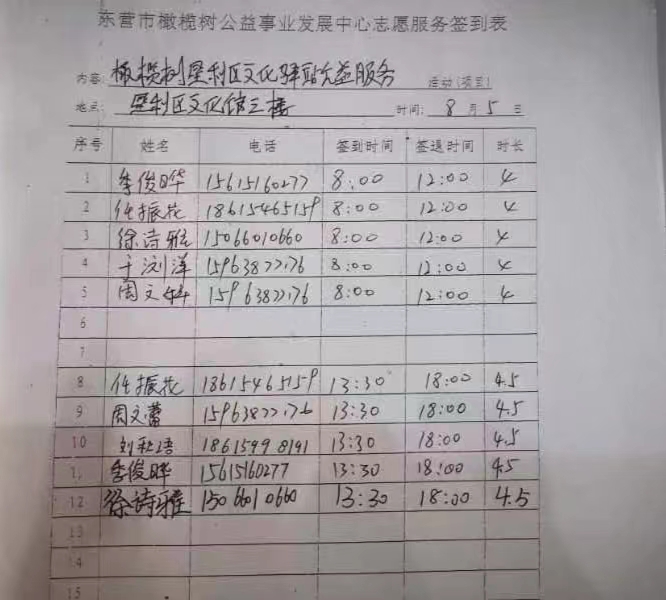 东营市橄榄树公益事业发展中心志愿服务签到表
内容: 橄榄树垦利区文化驿站公益服务 活动(项目)
地点: 垦利区文化馆三楼 时间: 8月5日
序号 姓名 电话 签到时间 签退时间 时长
1 季俊晔 15615160277 8:00 12:00 4
2 任振花 18615465159 8:00 12:00 4
3 徐诗雅 15066010660 8:00 12:00 4
4 于浏洋 15963822176 8:00 12:00 4
5 周文 15963822176 8:00 12:00 4
6
7
8 任振花 18615465159 13:30 18:00 4.5
9 周文蕾 15963822176 13:30 18:00 4.5
10 刘 18615998191 13:30 18:00 4.5
11 季俊晔 15615160277 13:30 18:00 4.5
12 徐诗雅 15066010660 13:30 18:00 4.5
13
14
15